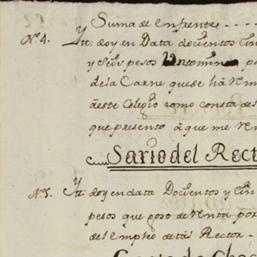 Suma de enfrente - - - -
N.º 4. Yt. doy en Data docientos Cin
y Seis pesos
de la Carne que se há rem
a este Colegio como consta de
que presento à que me re
Sario del Rect
N.º 5. Yt. doy en data Docientos y Cin
pesos que gozo de renta por
del empleo de tal Rector.